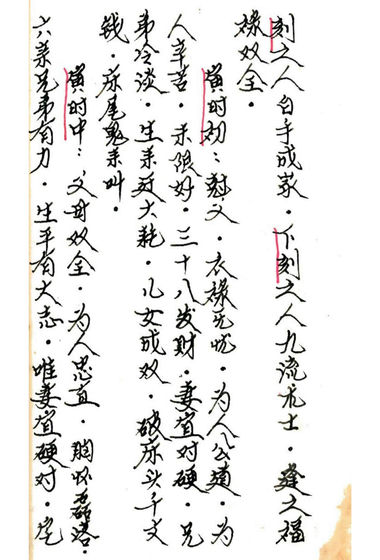 刻之人白手成家．下刻之人九流术士．逢之福
禄双全．
寅时初：尅父．衣禄无忧．为人公道．为
人辛苦．末限好．三十八发财．妻宜对硬．兄
弟冷淡．生来大耗．儿女成双．破床头千文
钱．床尾鬼来叫．
寅时中：父母双全．为人忠直．胸怀磊落．
六亲兄弟有力．生平有大志．唯妻宜硬对．